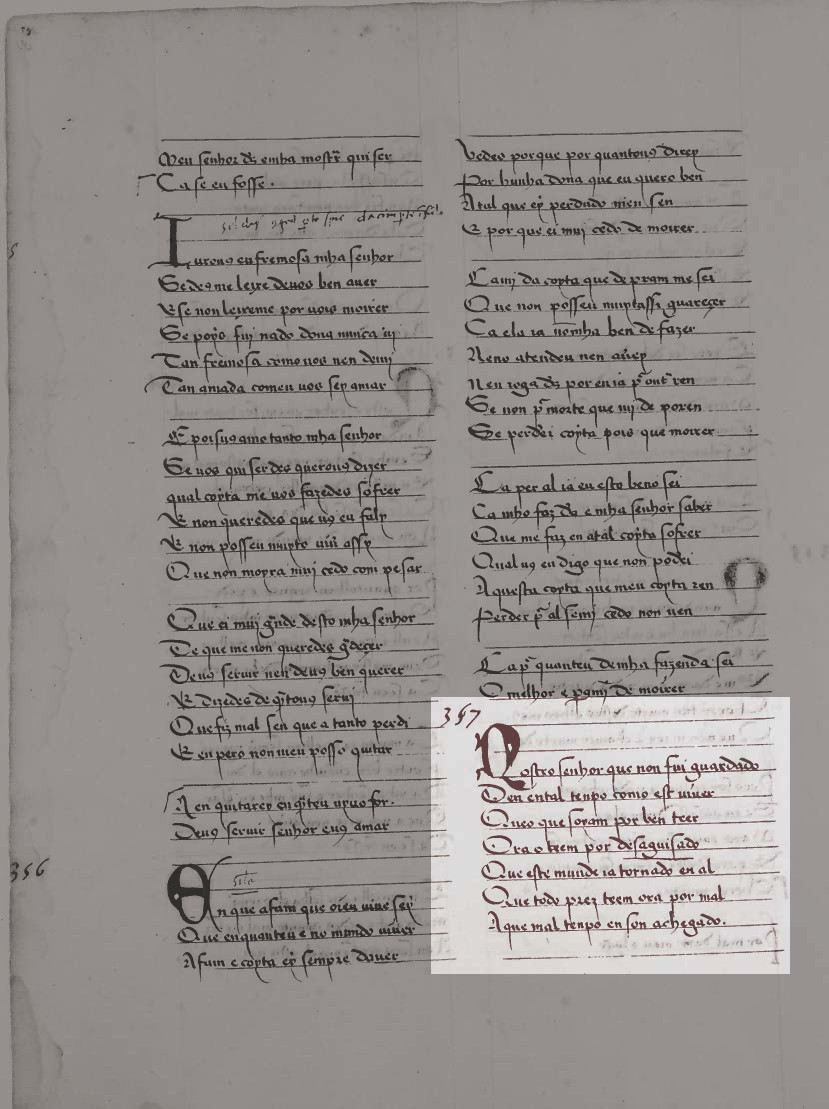 Meu senhor ds̄ emha mostr̄ quiser
Ca se eu fosse.
Iuro uos eu fremosa mha senhor
Se ds̄ me leixe deuos ben auer
E se non leixeme por uos morrer
Se poys fuy nado dona nunca ui
Tan fremosa como uos nen demi
Tan amada comeu uos sey amar
E poys uos amo tanto mha senhor
Se uos quiserdes querouos dizer
qual coyta me uos fazedes sofrer
E non queredes que uos eu faly
E non posseu muyto uiui assy
Que non moyra muj cedo com pesar
Que ei muj gr̄nde desto mha senhor
De que me non queredes gr̄decer
Deuos seruir nen deuos ben querer
E dizedes de qr̄touos serui
Que fiz mal sen que atanto perdi
E en pero non meu posso quitar
Nen quitarey en qr̄teu uyuo for.
Deuos seruir senhor euos amar
356
En que afam que oieu uiue sey
Que en quanteu e no mundo uiuer
Afam e coyta ey sempre dauer
Vedes porque por quantouos direy
Por hunha dona que eu quero ben
Atal que ey perdudo meu sen
E por que ei muj cedo de morrer
Camj da coyta que de pram me sei
Que non posseu muytassi guareçer
Ca ela ia nomha ben de fazer
Neno atendeu nen auerey
Nen roga ds̄ por en ia pr̄ outr̄ ren
Se non pr̄ morte que mj de poren
Se perdei coyta pois que morrer
Ca per al ia eu esto beno sei
Ca mho faz ds̄ e mha senhor saber
Que me faz en atal coyta sofrer
Qual uos eu digo que non podei
Aquesta coyta que meu coyta ren
Perder pr̄ al semj cedo non uen
Ca pr̄ quanteu demha fazenda sei
O melhor e pr̄ami de morrer
357
Nostro senhor que non fui guardado
Den ental tenpo como est uiuer
Queo que soyam por ben teer
Ora o teem por desaguisado
Que este mund e ia tornado en al
Que todo prez teem ora por mal
A que mal tenpo eu son achegado.